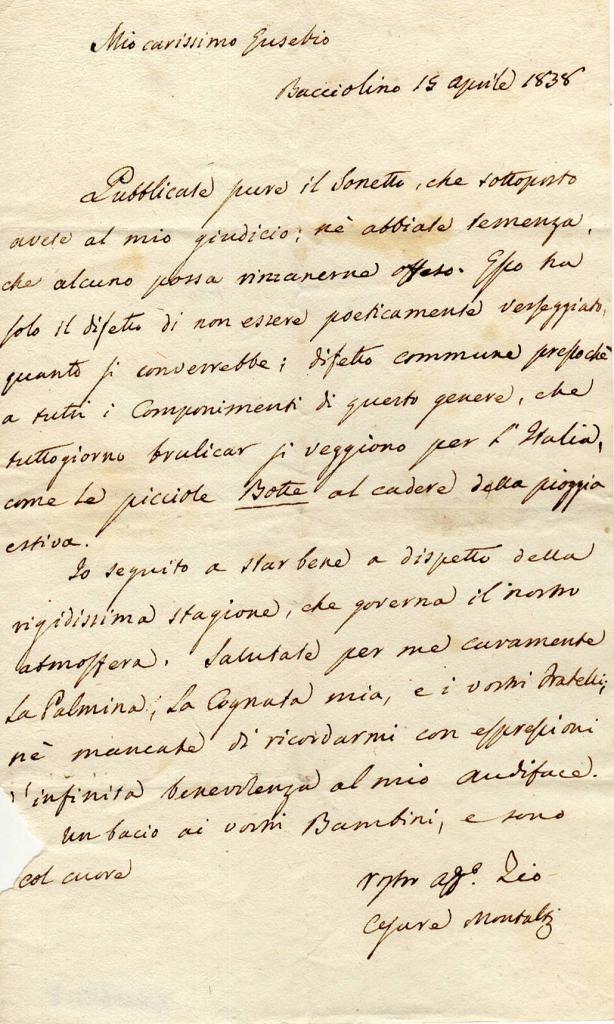 Mio carissimo Eusebio
Bacciolino 15 aprile 1838
Pubblicate pure il Sonetto, che sottoposto
avete al mio giudicio; nè abbiate temenza,
che alcuno possa rimanerne offeso. Esso ha
solo il difetto di non essere poeticamente verseggiato,
quanto si converrebbe; difetto commune pressochè
a tutti i Componimenti di questo genere, che
tuttogiorno brulicar si veggiono per l'Italia,
come le picciole Botte al cadere della pioggia
estiva.
Io seguito a star bene a dispetto della
rigidissima stagione, che governa il nostro
atmosfera. Salutate per me caramente
la Palmina, la Cognata mia, e i vostri Fratelli;
nè mancate di ricordarmi con espressioni
d'infinita benevolenza al mio Audiface.
Un bacio ai vostri Bambini, e sono
col cuore
vostro aff.o Zio
Cesare Montalti